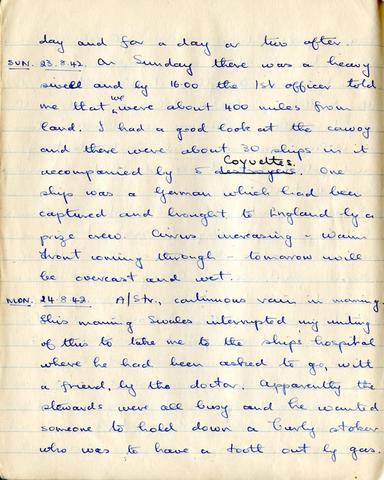 day and for a day or two after.
SUN. 23.8.42. On Sunday there was a heavy
swell and by 16.00 the 1st officer told
me that we were about 400 miles from
land. I had a good look at the convoy
and there were about 30 ships in it
Coyvettes.
accompanied by 5 destroyers. One
ship was a German which had been
captured and brought to England by a
prize crew. Cirrus increasing - warm
front coming through - tomorrow will
be overcast and wet.
MON. 24.8.42. A/Str., continuous rain in morning.
This morning Swales interrupted my writing
of this to take me to the ships hospital
where he had been asked to go, with
a friend, by the doctor. Apparently the
stewards were all busy and he wanted
someone to hold down a burly stoker
who was to have a tooth out by gas.